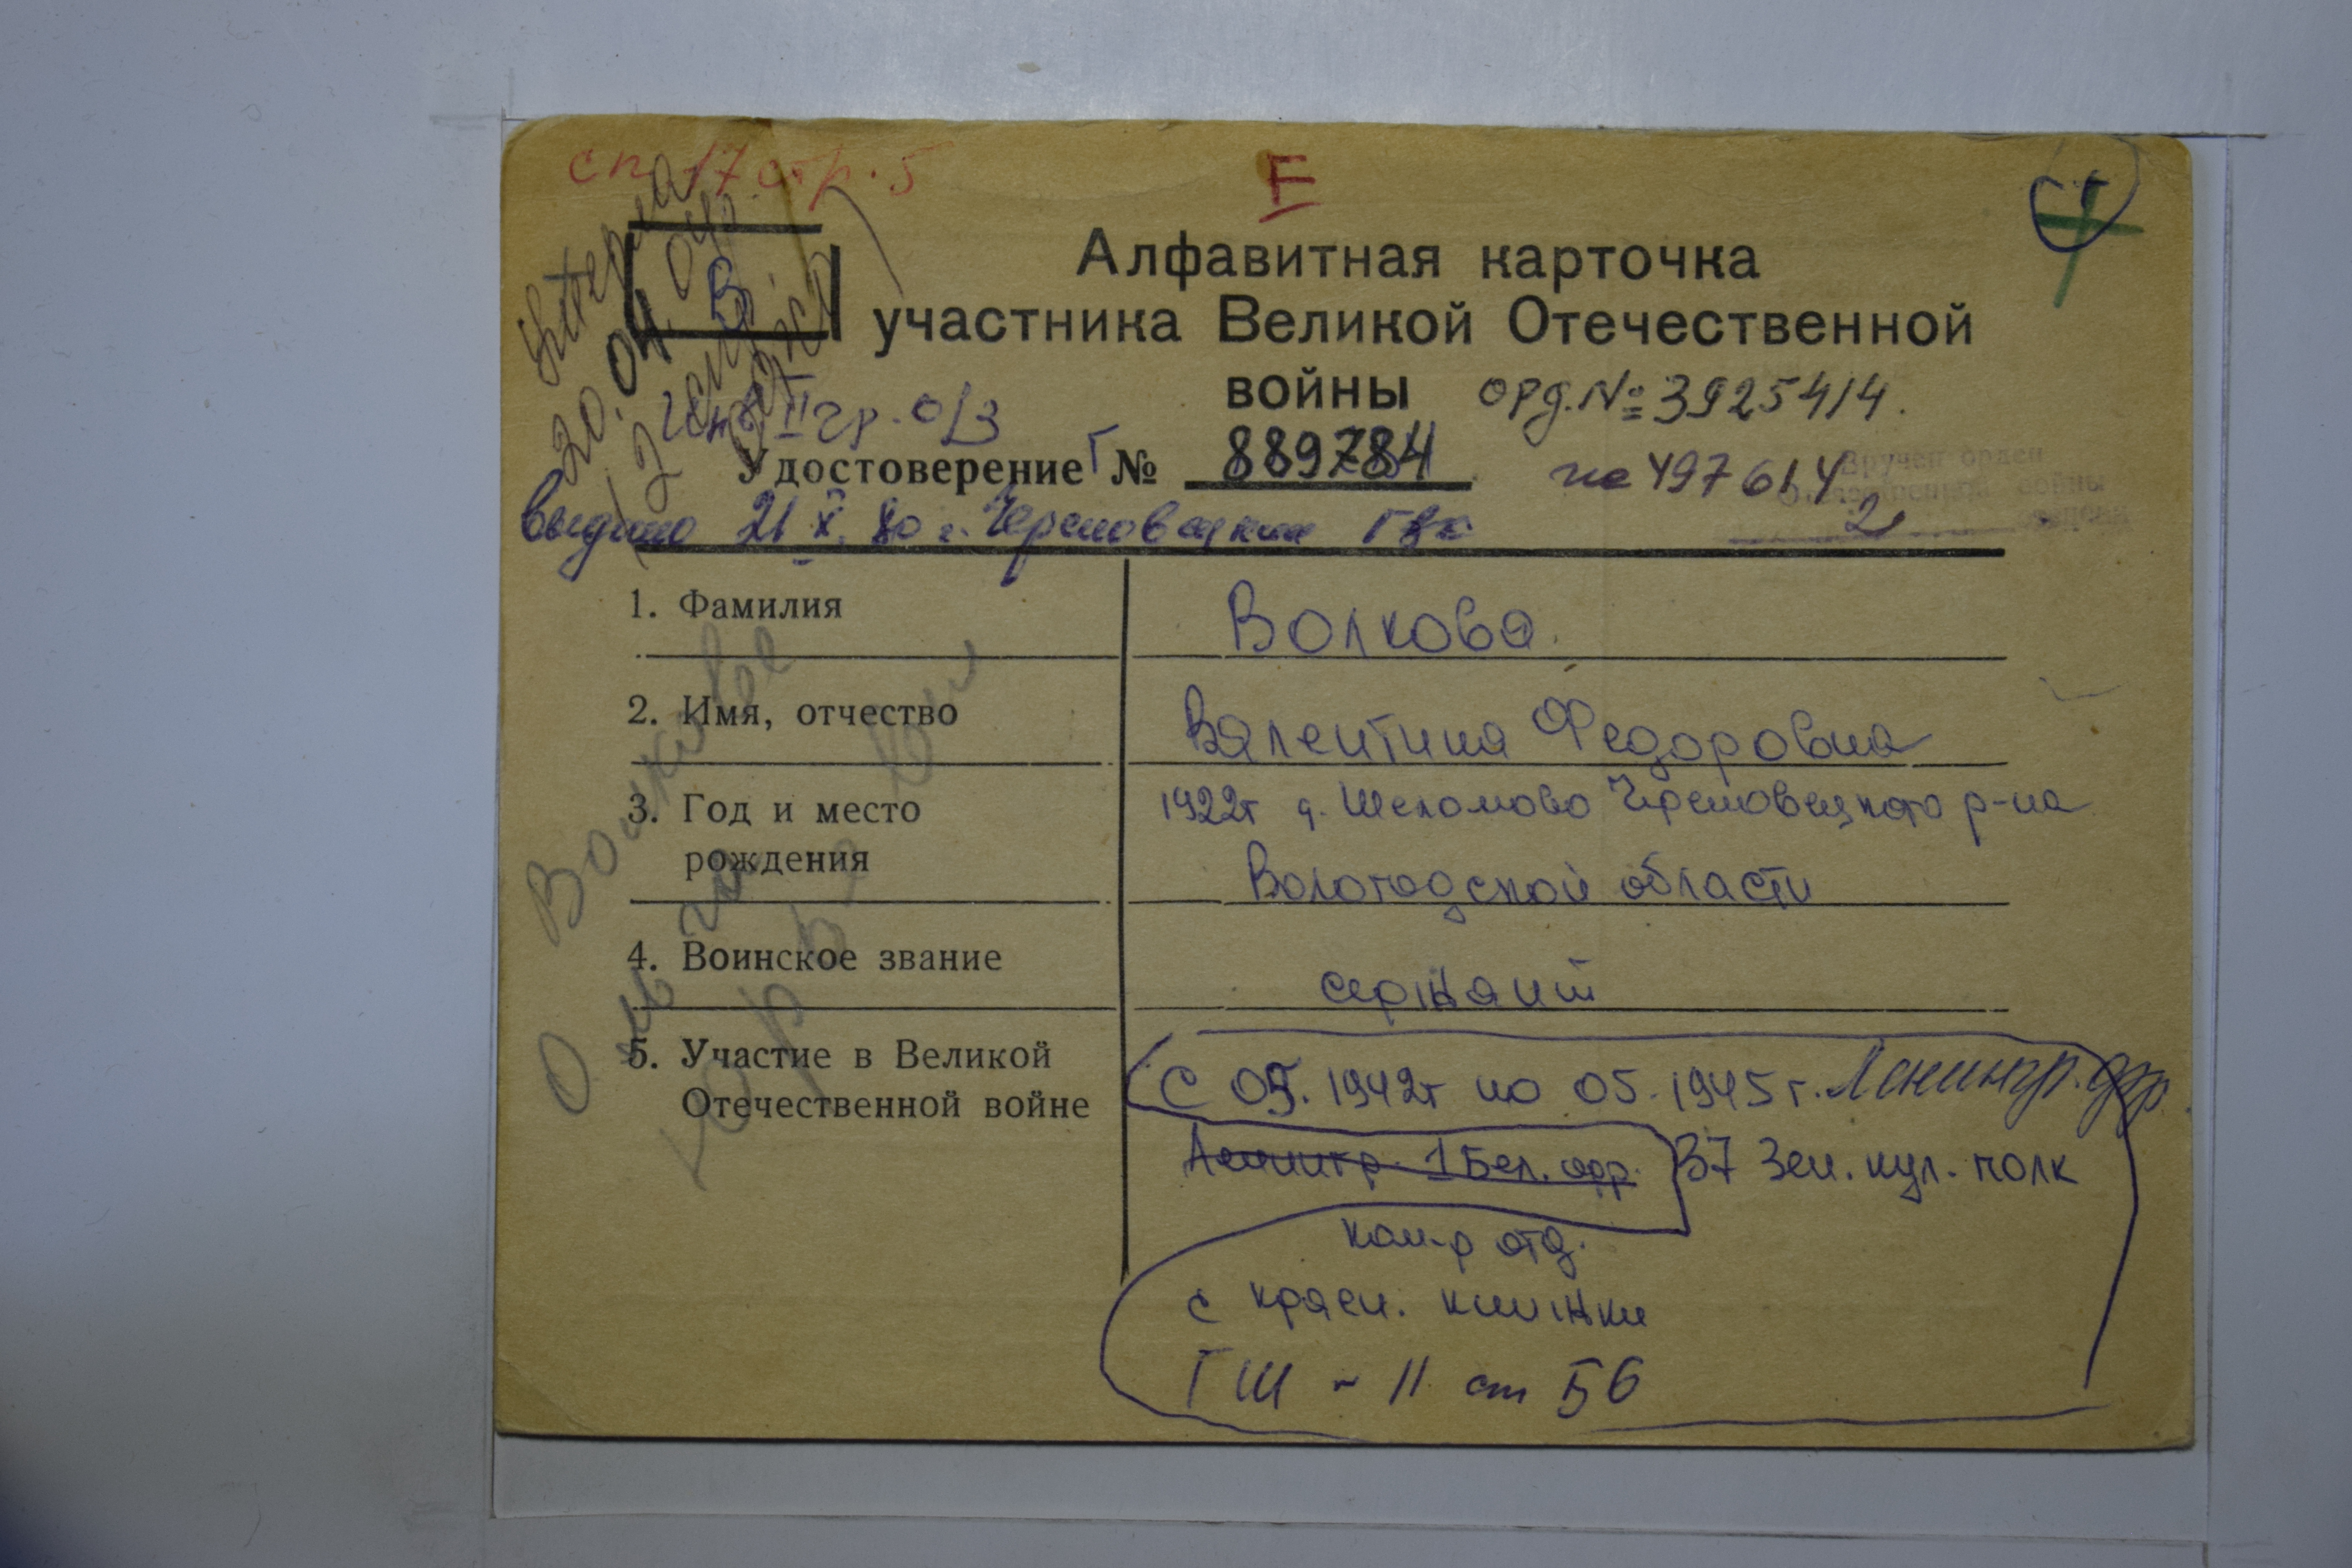 сп. 17 стр. 5
F
В
Алфавитная карточка
участника Великой Отечественной
войны орд. № 3925414.
Инв. II гр. о/з
Удостоверение Г № 889784 на 497614
Вручен орден
Отечественной войны
2 степени
выдано 21 X. 80 г. Череповецким ГВК
1. Фамилия Волкова
2. Имя, отчество Валентина Федоровна
3. Год и место 1922г д. Шеломово Череповецкого р-на
рождения Вологодской области
4. Воинское звание сержант
5. Участие в Великой С 05.1942г по 05.1945г. Ленингр. фр.
Отечественной войне
Ленингр. 1 Бел. фр. 37 Зен. пул. полк
ком-р отд.
с красн. книжки
ГШ - 11 ст 56
20.04